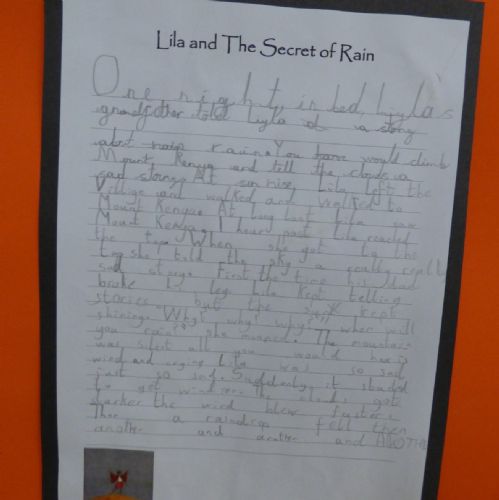 Lila and The Secret of Rain
One night, in bed, Liyla's
grandfather told Liyla a story
abot rain You have would climb
Mount Kenya and tell the clouds a
sad story. At sun rise, Lila left the
Village and walked and walked to
Mount Kenya. At long last Lila saw
Mount Kenya. 1 hours past Lila reached
the top. When she got to the
top she told the sky a really really
sad story. First the time his Dad
broke his leg. Lila kept telling
stories but the sun kept
shining. Why? why? why? when will
you rain? she moaned. The mountain
was silent all you would hear is
wind and Lila was so sad
just so sad. Suddenly it started
to get the clouds got
darker the wind blew faster.
Then a raindrop fell then
another and another and ANOTHE